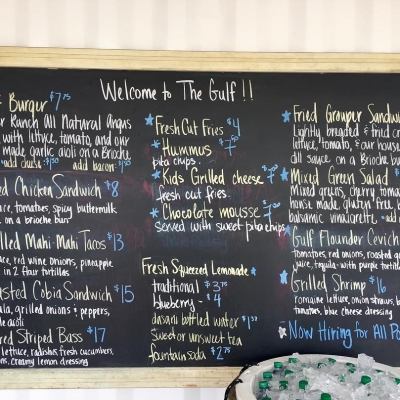 Welcome to The Gulf!!
Burger $7.75
Ranch All Natural Angus
with lettuce, tomato, and our
made garlic aioli on a Brioche
add bacon
Chicken Sandwich $8
tomatoes, spicy buttermilk
on a brioche bun
Mahi-Mahi Tacos $13
red wine onions, pineapple
in 2 flour tortillas
Cobia Sandwich $15
grilled onions & peppers,
aioli
Striped Bass $17
lettuce, radishes, fresh cucumbers,
onions, creamy lemon dressing
Fresh Cut Fries $4
Hummus $7.50
pita chips.
Kids Grilled cheese
fresh cut fries.
Chocolate mousse
served with sweet pita chips
Fresh Squeezed Lemonade
traditional $3.75
blueberry - $4
dasani bottled water
Sweet or unsweet tea
fountain soda $2.75
Fried Grouper Sandw
Lightly breaded & fried on
lettuce, tomato, & our house
dill sauce on a Brioche bun
Mixed Green Salad
Mixed greens, cherry tomato
house made, gluten free b
balsamic vinaigrette - add
Gulf Flounder Cevich
Tomatoes, red onions, roasted
juice, tequila - with purple tortill
Grilled Shrimp $16
romaine lettuce, onion straws, b
tomatoes, blue cheese dressing
Now Hiring for All Po